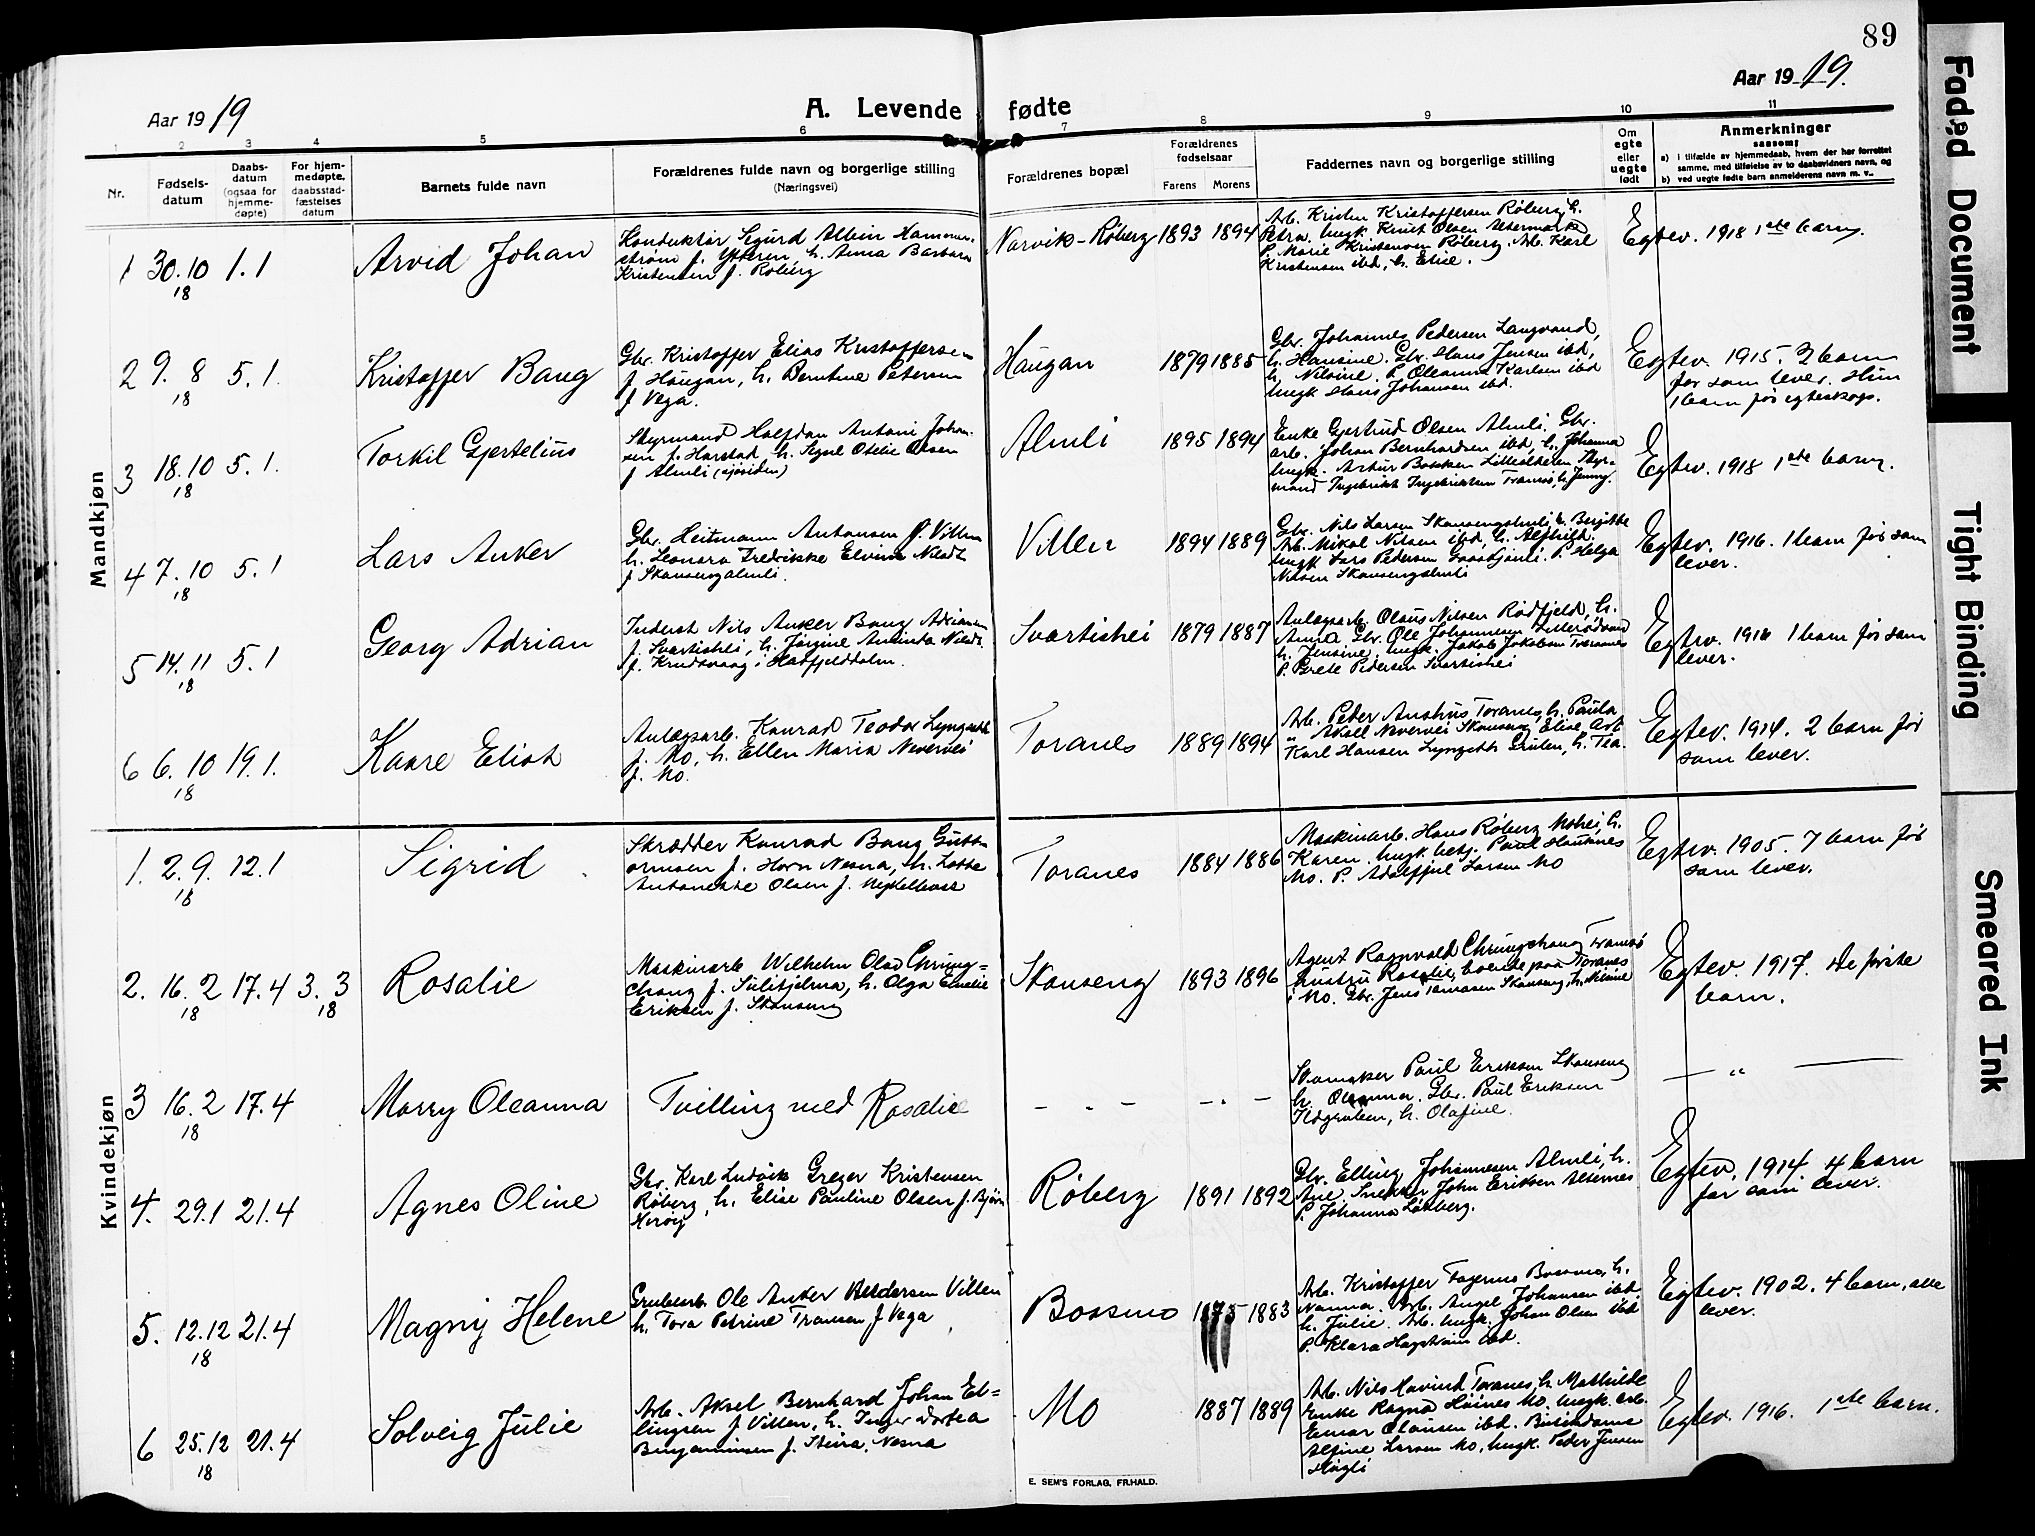 89
Aar 1919
A. Levende fødte
Aar 1919.
1 2 3 4 5 6 7 8 9 10 11
Nr.
Fødsels-
datum
Daabs-
datum
(ogsaa for
hjemme-
døpte)
For hjem-
medøpte,
daabsstad-
fæstelses
datum
Barnets fulde navn
Forældrenes fulde navn og borgerlige stilling
(Næringsvei)
Forældrenes bopæl
Forældrenes
fødselsaar
Farens Morens
Faddernes navn og borgerlige stilling
Om
egte
eller
uegte
født
Anmerkninger
saasom:
a) i tilfælde av hjemmedaab, hvem der har forrettet
samme, med tilføielse av to daabsvidners navn, og
b) ved uegte fødte barn anmelderens navn m. v.
Mandkjøn
1 30.10 1.1
18
Arvid Johan
Konduktør Sigurd Albin Hammer-
strøm f. Ytteren, h. Anna Barbara
Kristensen f. Røberg
Narvik-Røberg 1893 1894
Arb. Kristen Kristoffersen Røberg, h.
Petra. Ungk. Knut Olsen Altermark
P. Marie Kristensen Røberg. Arb. Karl
Kristensen ibd, h. Elise.
Egtev. 1918 1ste barn.
2 9.8 5.1.
18
Kristoffer Bang
Gbr. Kristoffer Elias Kristoffersen
f. Haugan, h. Berntine Petersen
f Vega.
Haugan 1879 1885
Gbr. Johannes Pedersen Langvand,
h. Hansine. Gbr. Hans Jensen ibd,
h. Nilsine. P. Oleanna Karlsen ibd
Ungk Hans Johansen ibd.
Egtev. 1915. 3 barn
før som lever. Hun
1 barn før egteskap.
3 18.10 5.1.
18
Torkil Gjertelius
Styrmand Halfdan Antoni Johan-
sen f. Harstad, h. Signe Otelie Olsen
f Almli (sjøsiden)
Almli 1895 1894
Enke Gjertrud Olsen Almli. Gbr.
arb. Johan Bernhardsen ibd, h. Johanna
Ungk. Artur Bakken Lillealteren Styr-
mand Ingebrikt Ingebriktsen Tromsø, h. Jenny.
Egtev. 1918 1ste barn.
4 7.10 5.1
18
Lars Anker
Gbr. Heitmann Antonsen f. Villen
h. Leonora Fredrikke Elvine Nilsdt.
f Skansengalmli.
Villen 1894 1889
Gbr. Nils Larsen Skansengalmli h. Birgitte
Arb. Mikal Nilsen ibd, h. Alfhild.
Ungk Lars Pedersen P. Helga
Nilsen Skansengalmli
Egtev. 1916. 1 barn før som
lever.
5 14.11 5.1
18
Georg Adrian
Inderst Nils Anker Bang Adriansen
f. Svartishei, h. Jørgine Aminda Nilsdt.
f. Krutvaag i Hatfjelddalen.
Svartishei 1879 1887
Anlægsarb. Olaus Nilsen Rødfjeld, h.
Anna Gbr. Ole Johannesen
h. Jensine. Ungk. Jakob Jakobsen Toranes
P. Grete Pedersen Svartishei
Egtev. 1916 1 barn før som
lever.
6 6.10 19.1.
18
Kaare Eliot
Anlægsarb. Konrad Teodor Lyngseth
f. Mo, h. Ellen Maria Nevernes
f. Mo.
Toranes 1889 1894
Arb. Peter Toranes, h. Paula
" Aksel Nevernes Skanseng Elise Arb
Karl Hansen Lyngseth Gruben, h. Tea.
Egtev. 1914. 2 barn før
som lever.
Kvindekjøn
1. 2.9. 12.1
18
Sigrid
Skrædder Konrad Bang Gutt-
ormsen f. Horn Nesna, h. Lotte
Antonette Olsen f. Mykelbost
Toranes 1884 1886
Maskinarb. Hans Røberg Mohei, h.
Karen. Ungk. betj. Paul Hauknes
Mo. P. Larsen Mo
Egtev. 1905. 7 barn før
som lever.
2. 16.2 17.4 3.3
18 18
Rosalie
Maskinarb Wilhelm Olav Chrung-
chaug f. Sulitjelma, h. Olga Emelie
Eriksen f. Skanseng
Skanseng 1893 1896
Agent Ragnvald Chrungchaug Tromsø
hustru Rosalie, boende paa Toranes
i Mo. Gbr. Jens Tomasen Skanseng, h.
Egtev. 1917. De første
barn.
3 16.2 17.4
18
Marry Oleanna
Tvilling med Rosalie
- " - - " -
Skomaker Paul Eriksen Skanseng
h. Oleanna. Gbr. Paul Eriksen
Ildgruben, h. Olafine.
— " —
4. 29.1 21.4
Agnes Oline
Gbr. Karl Ludvik Greger Kristensen
Røberg, h. Elise Pauline Olsen f. Bjørn
Herøy
Røberg 1891 1892
Gbr. Elling Johannesen Almli, h.
Ane. Snekker John Eriksen Alternes
P. Johanna Løkberg.
Egtev. 1914 4 barn
før som lever.
5. 12.12 21.4
18
Magny Helene
Grubearb. Ole Anker Villen
h. Tora Petrine Fransen f Vega
Bossmo 1875 1883
Arb. Kristoffer Fagermo Bossmo, h.
Nanna. Arb. Angel Johansen ibd
h. Julie. Arb. Ungk. Johan Olsen ibd
P. Klara Hagstrøm ibd.
Egtev. 1902. 4 barn, alle
lever.
6 25.12 21.4
18
Solveig Julie
Arb. Aksel Bernhard Johan El-
lingsen f. Villen, h. Inger Dortea
Benjaminsen f. Stina, Nesna
Mo 1887 1889
Arb. Nils Havind Toranes, h. Mathilde
Enke Ragna Høines Mo. Ungk. arb.
Einar Olausen ibd. Butikdame
Alfine Larsen Mo, Ungk. Peder Jensen
Haugli
Egtev. 1916. 1ste barn.
E. SEM'S FORLAG, FR.HALD.
Faded Document
Tight Binding
Smeared Ink